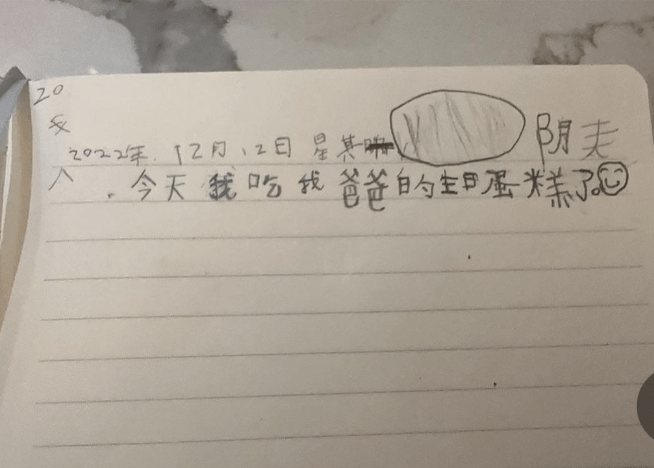 20
2022年 12月 12日 星其 阴天
人 . 今天我吃我爸爸的生日蛋糕了。